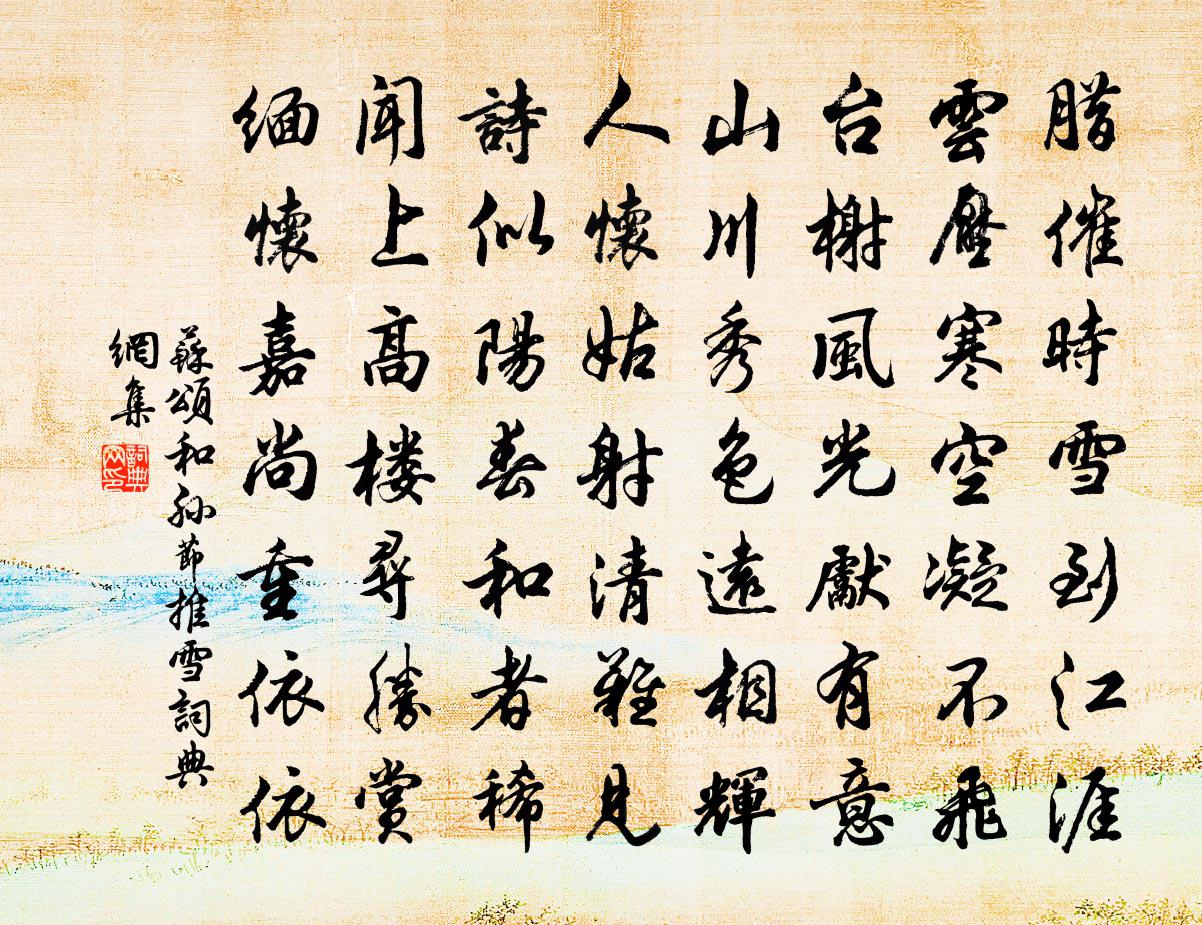 腊催時雪到江涯
雲壓寒空凝不飛
台榭風光獻有意
山川秀色遠相輝
人懷姑射清難見
詩似陽春和者稀
聞上高楼尋勝賞
緬懷嘉尚重依依
蘇頌和孙節推雪詞典
網集
詞典
网印